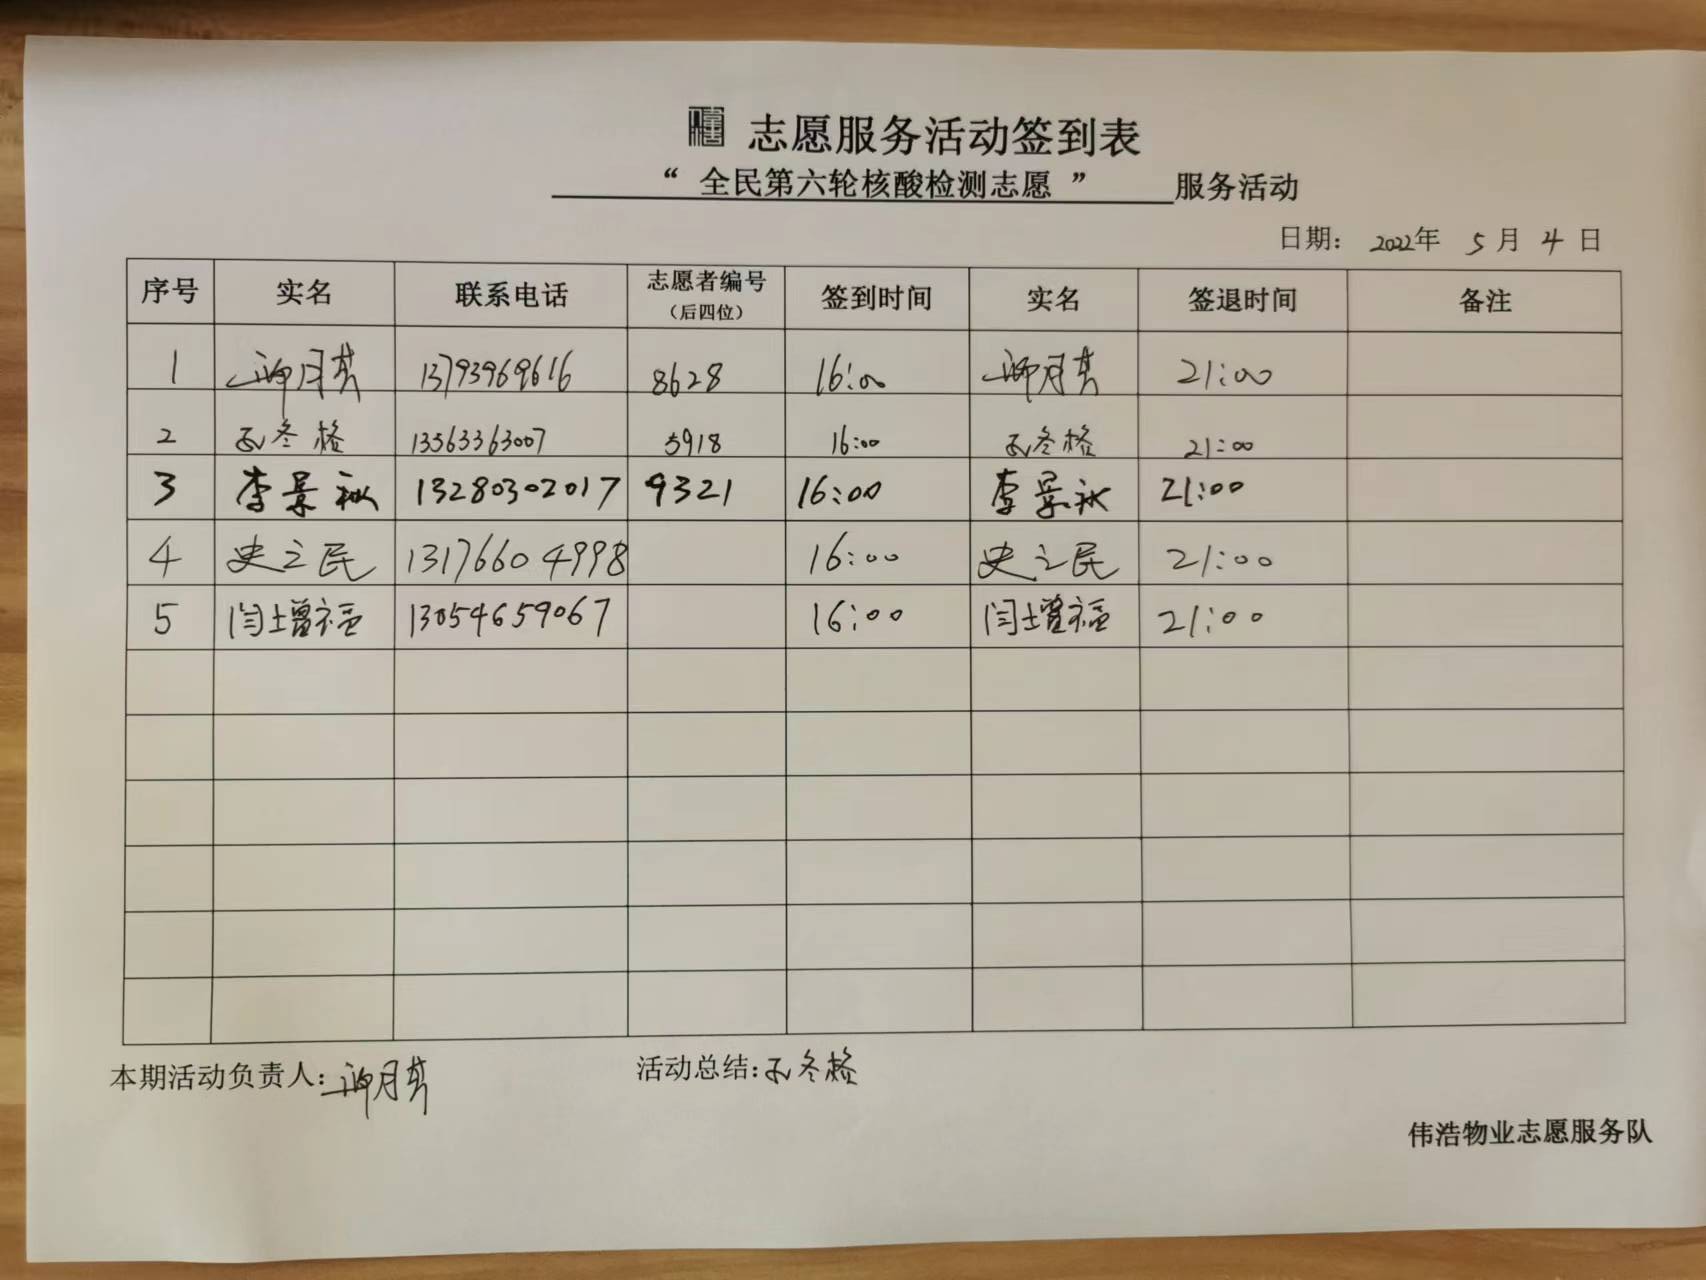 志愿服务活动签到表
“ 全民第六轮核酸检测志愿 ” 服务活动
日期： 2022年 5 月 4 日
序号 实名 联系电话 志愿者编号（后四位） 签到时间 实名 签退时间 备注
1 月 13793969616 8628 16:00 月 21:00
2 冬格 13563363007 5918 16:00 冬格 21:00
3 李景秋 13280302017 9321 16:00 李景秋 21:00
4 史之民 13176604998 16:00 史之民 21:00
5 闫增福 13054659067 16:00 闫增福 21:00
本期活动负责人： 月 活动总结: 冬格
伟浩物业志愿服务队